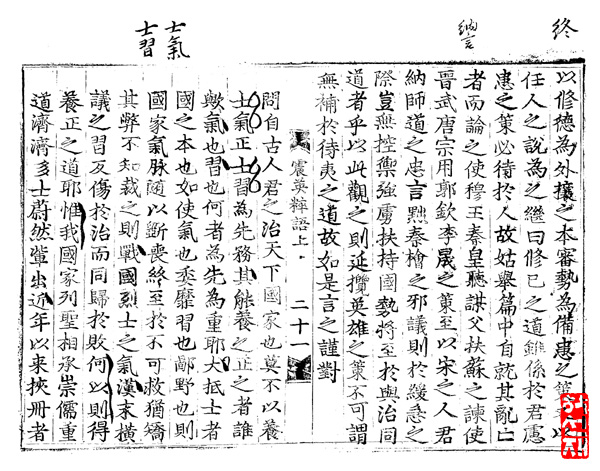 終
納言
以修德為外攘之本審勢為備患之策以
任人之說為之継曰修己之道雖係於君慮
患之策必待於人故姑舉篇中自就其亂亡
者而論之使穆王秦皇聽謀父扶蘇之諫使
晉武唐宗用郭欽李晟之策至以宋之人君
納師道之忠言黜秦檜之邪議則於緩急之
際豈無控禦強虜扶持國勢將至於與治同
道者乎以此觀之則延攬英雄之策不可謂
無補於待夷之道故如是言之謹對
震英粹語上
二十一
士氣
士習
問自古人君之治天下國家也莫不以養
士氣正士習為先務其能養之正之者誰
歟氣也習也何者為先為重耶大抵士者
國之本也如使氣也委靡習也鄙野也則
國家氣脉随以斷喪終至於不可救猶矯
其弊不知裁之則戰國烈士之氣漢末橫
議之習反傷於治而同歸於敗何以則得
養正之道耶惟我國家列聖相承崇儒重
道濟濟多士蔚然輩出近年以來挾冊者